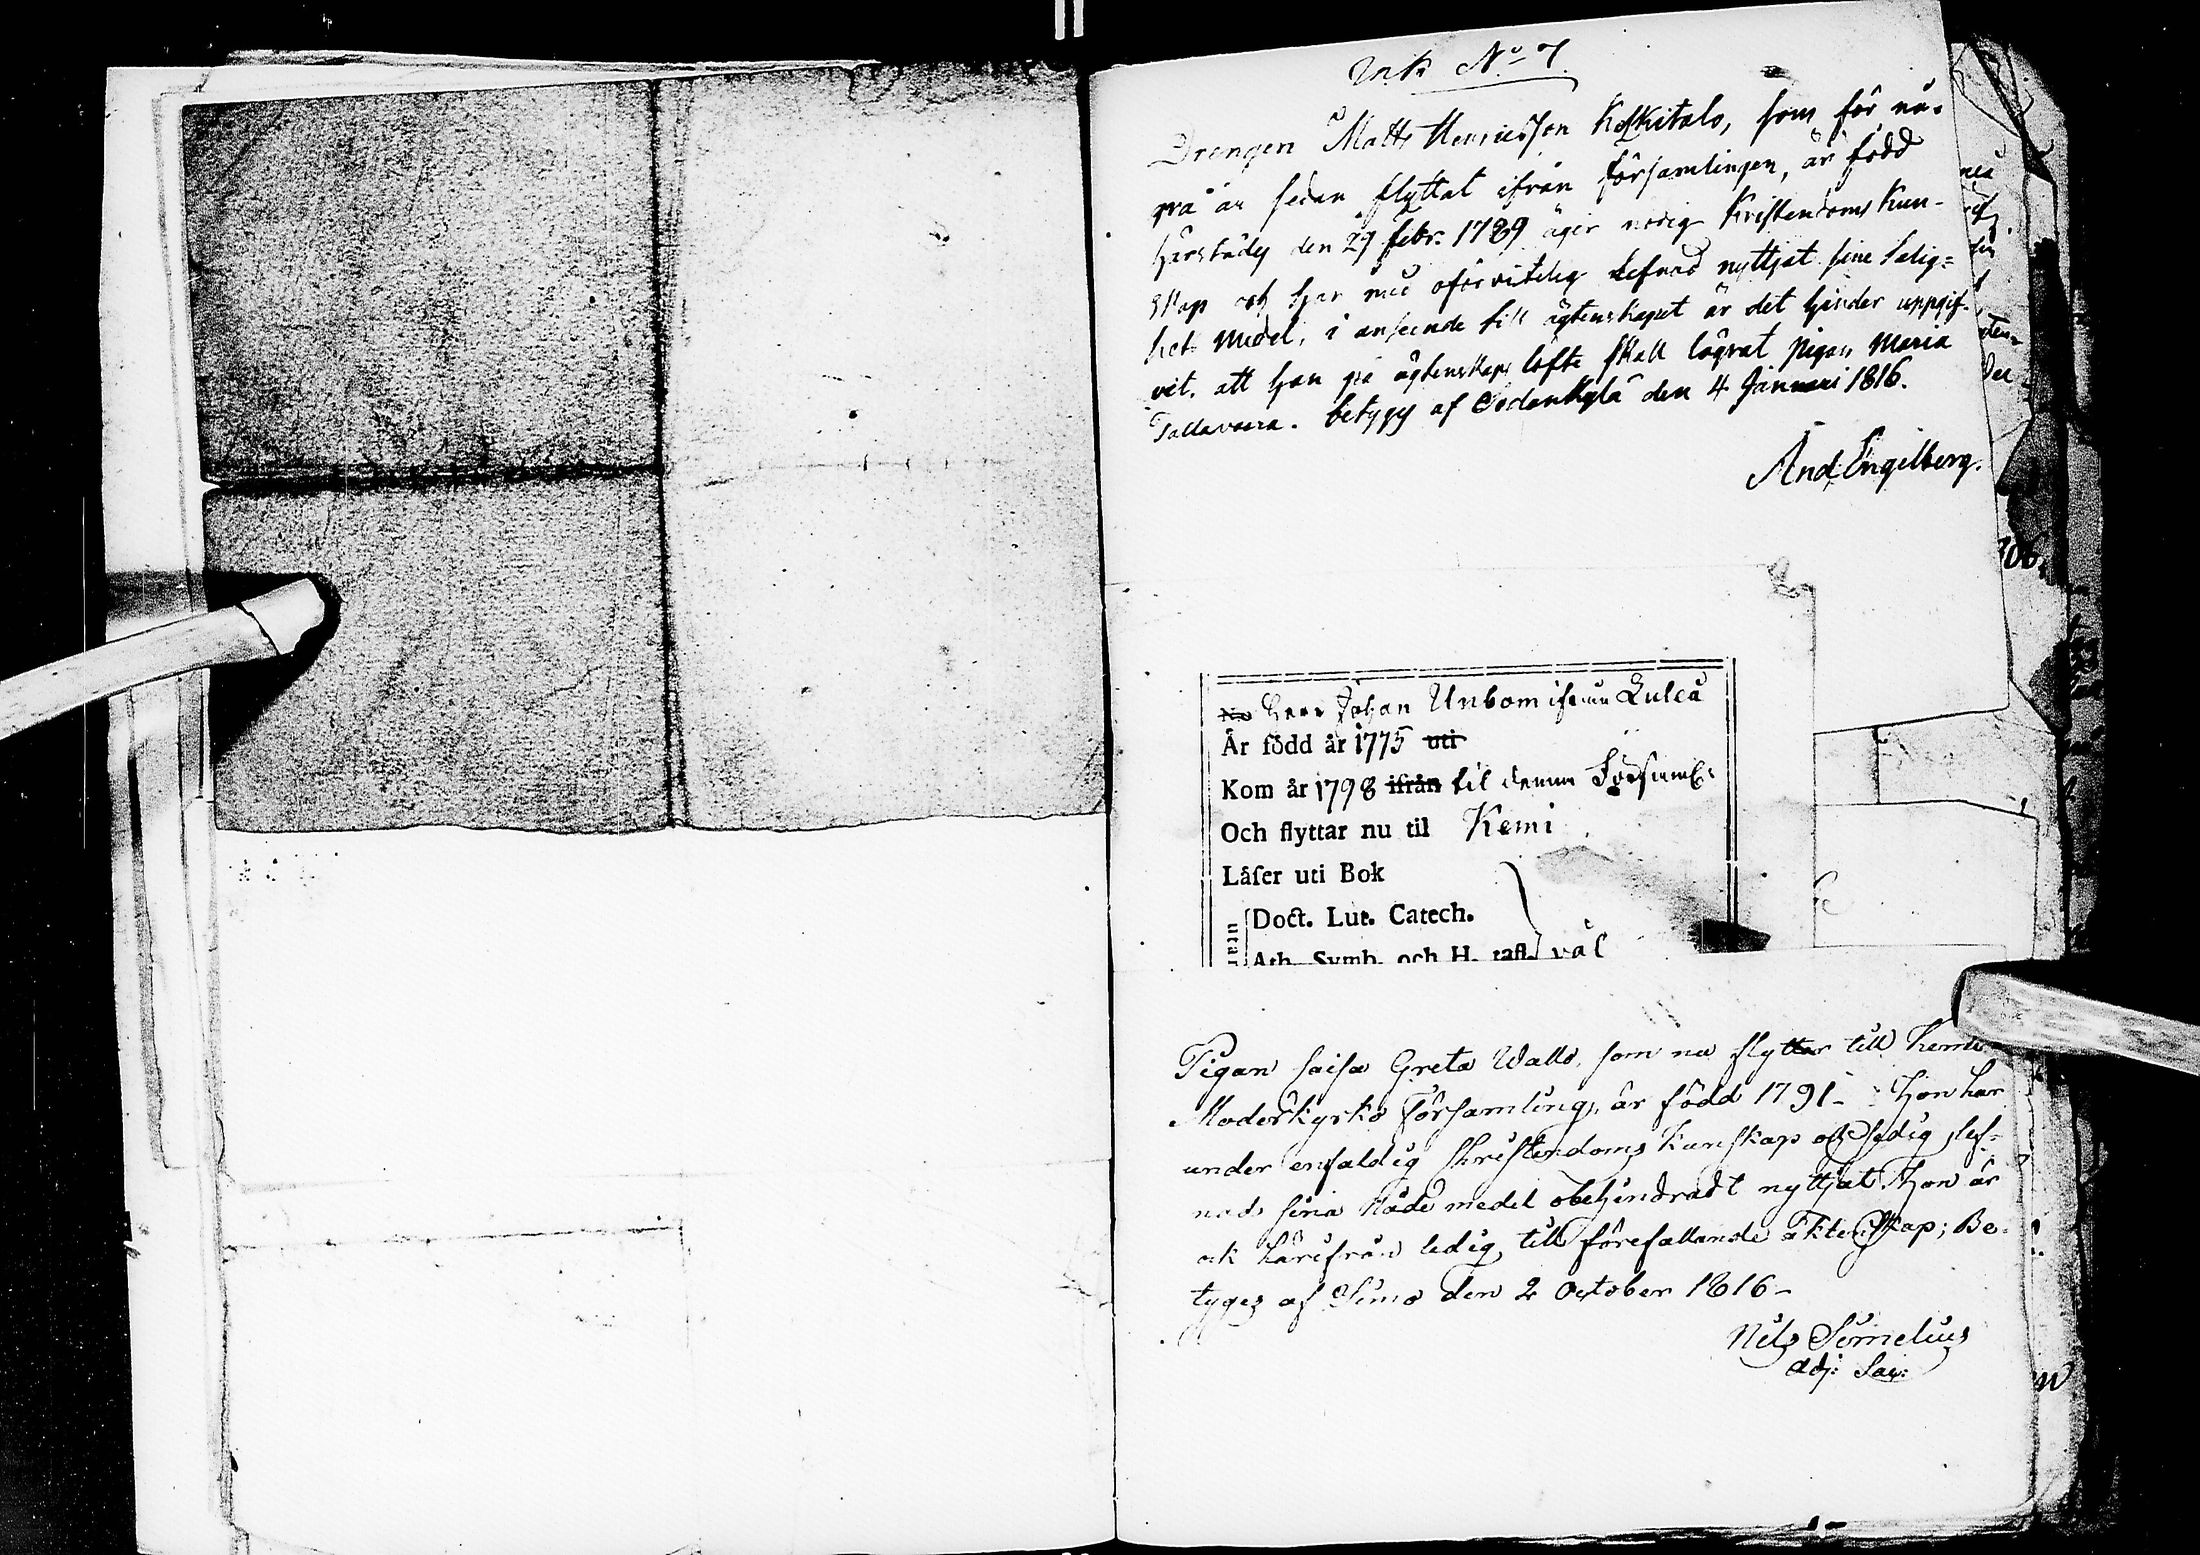 Ink No 7.
Drengen Matts Henricsson Koskitalo, som för nå-
gra år sedan flyttat ifrån församlingen, är född
härstädes den 29 febr. 1789 äger nödig Kristendoms Kun-
skap och har med oförvitelig Lefnad nyttjat sine Salig=
hets Medel, i anseende till ägtenskapet är det hinder uppgif-
vit. att han på ägtenskaps löfte skall lägrat pigan Maria
Tallavaara. betyges af Sodankylä den 4 Januari 1816.
And. Engelberg.
No Herr Johan Unbom ifrån Luleå
Är född år 1775 uti
Kom år 1798 ifrån til denna Församl:
Och flyttar nu til Kemi
Läser uti Bok
utan
Doct. Lut. Catech.
Ath. Symb. och H. tafl. väl
Pigan Caisa Greta Wallo, som nu flyttar till Kemi
Moderkyrko Församling, är född 1791 - Hon har
under enfaldig Christendoms Kunskap och sedig lef-
nad sina Nåde medel obehindradt nyttjat. Hon är
ock härifrån ledig, till förefallande äktenskap; Be-
tyges af Simo den 2 October 1816 -
Nils Simelius
Adj: Sac: